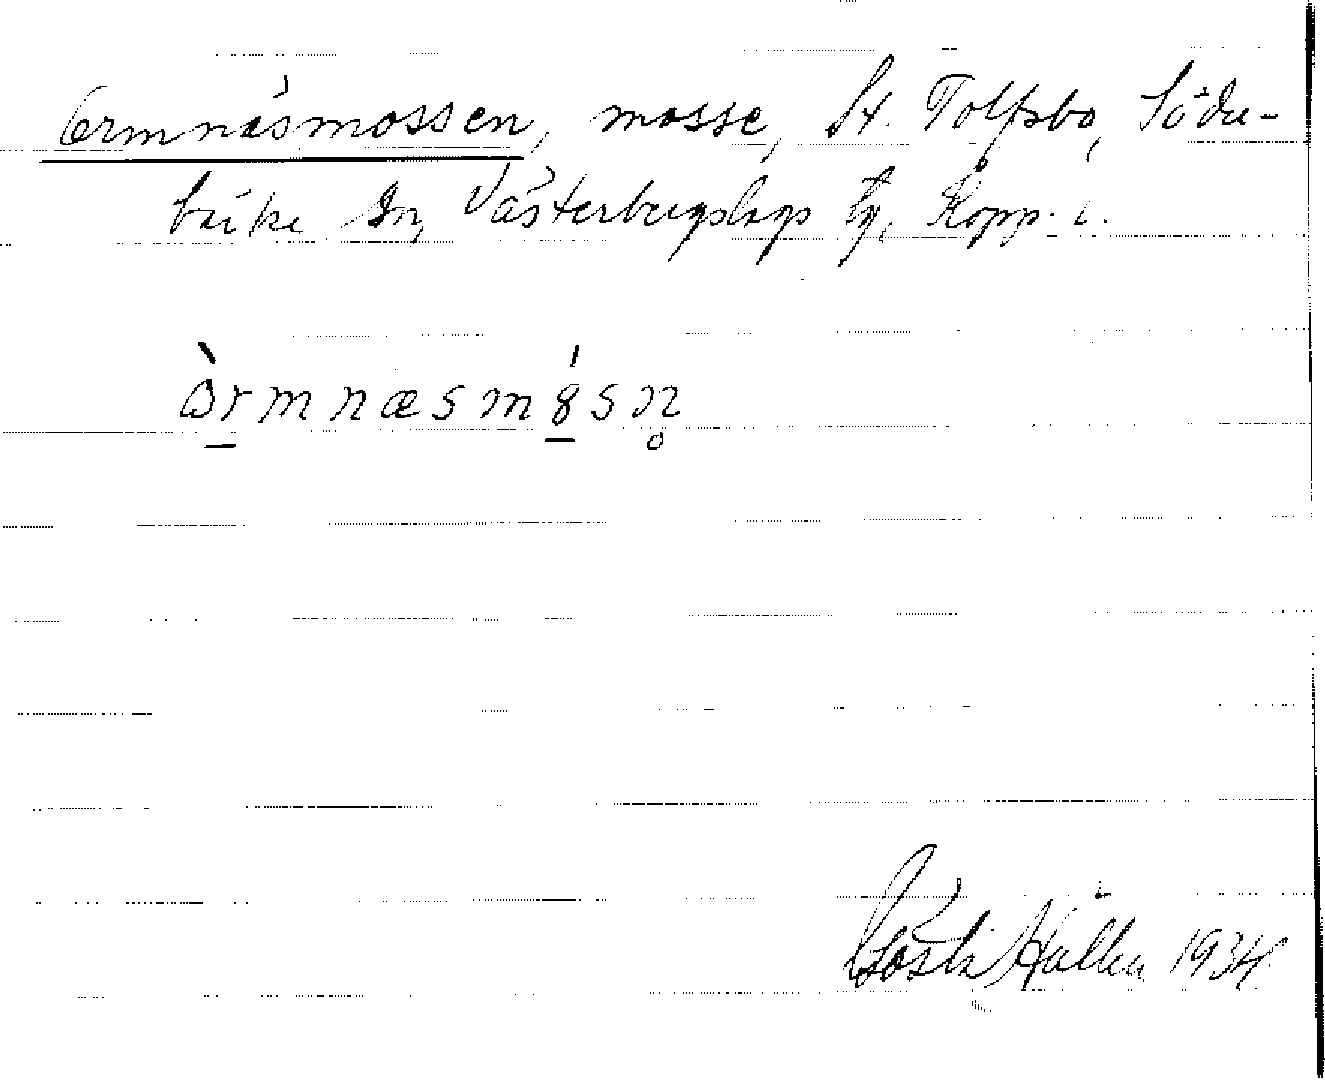 Ormnäsmossen, mosse, St. Tolfsbo, Söder-
bärke sn, Västerbergslags tg, Kopp. l.
òrmnæsmósn̥
Gösta Hällen 1934